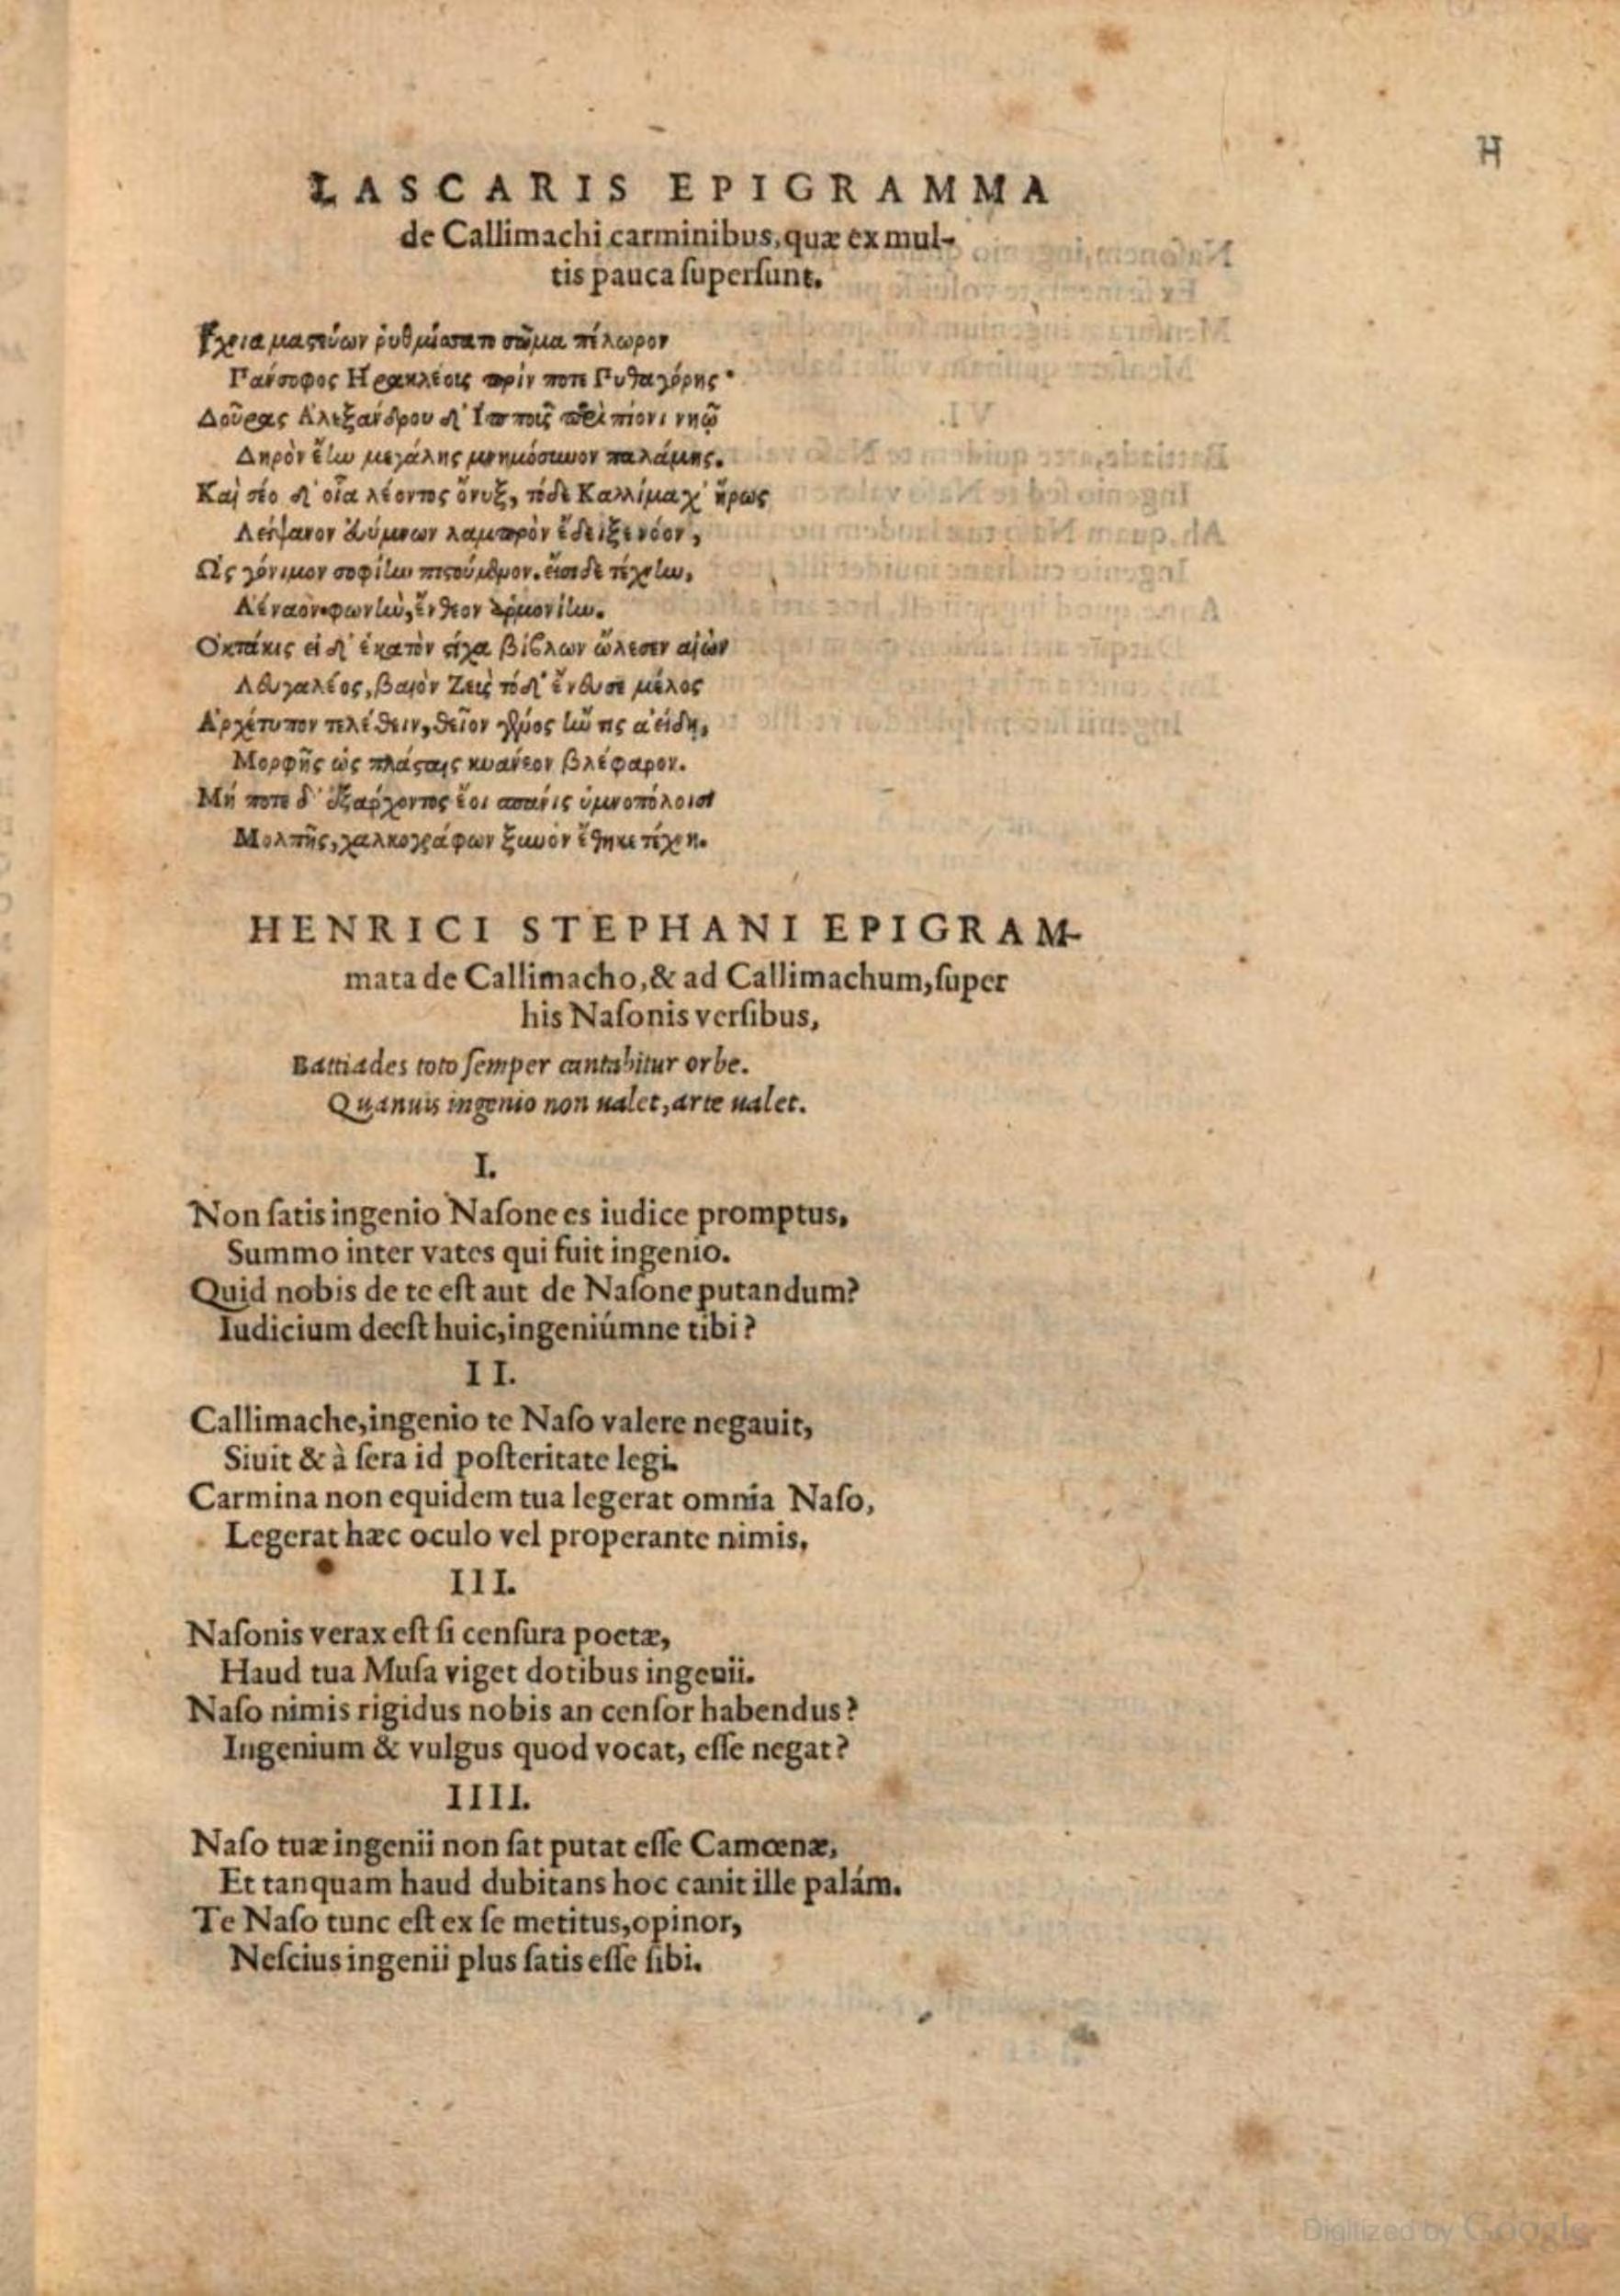 LASCARIS EPIGRAMMA
de Callimachi carminibus, quæ ex mul-
tis pauca ſuperſunt.
Ἴχνια μαστεύων ῥυθμίσατο σῶμα πέλωρον
Πάνσοφος Ἡρακλέοις πρίν ποτε Πυθαγόρης·
Δούρας Ἀλεξάνδρου δ' περὶ πίονι νηῷ
Δηρὸν ἔην μεγάλης μνημόσυνον παλάμης.
Καὶ σέο δ' οἷα λέοντος ὄνυξ, τόδε Καλλίμαχ' ἥρως
Λείψανον εὐύμνων λαμπρὸν ἔδειξε νόον,
Ὡς γόνιμον σοφίην πιστούμενον. τέχνην,
Ἀέναον φωνὴν, ἔνθεον ἁρμονίην.
Ὀκτάκις εἰ δ' ἑκατὸν στίχα βίβλων ὤλεσεν αἰὼν
Λευγαλέος, βαιὸν Ζεὺς τόδ' ἔνευσε μέλος
Ἀρχέτυπον τελέθειν, θεῖον γένος ἤν τις ἀείδῃ,
Μορφῆς ὡς πλάσταις κυάνεον βλέφαρον.
Μή ποτε δ' ἐξάρχοντος ἔοι σπάνις ὑμνοπόλοισι
Μολπῆς, χαλκογράφων ξυνὸν ἔθηκε τέχνη.
HENRICI STEPHANI EPIGRAM-
mata de Callimacho, & ad Callimachum, ſuper
his Naſonis verſibus,
Battiades toto ſemper cantabitur orbe.
Quanuis ingenio non ualet, arte ualet.
I.
Non ſatis ingenio Naſone es iudice promptus,
Summo inter vates qui fuit ingenio.
Quid nobis de te eſt aut de Naſone putandum?
Iudicium deeſt huic, ingeniúmne tibi?
II.
Callimache, ingenio te Naſo valere negauit,
Siuit & à ſera id poſteritate legi.
Carmina non equidem tua legerat omnia Naſo,
Legerat hæc oculo vel properante nimis.
III.
Naſonis verax eſt ſi cenſura poetæ,
Haud tua Muſa viget dotibus ingenii.
Naſo nimis rigidus nobis an cenſor habendus?
Ingenium & vulgus quod vocat, eſſe negat?
IIII.
Naſo tuæ ingenii non ſat putat eſſe Camœnæ,
Et tanquam haud dubitans hoc canit ille palám.
Te Naſo tunc eſt ex ſe metitus, opinor,
Neſcius ingenii plus ſatis eſſe ſibi.
Digitized by Google